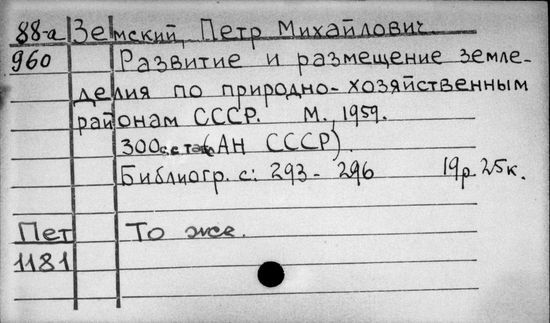 88-аЗемский, Петр Михайлович.
960 Развитие и размещение земле-
делия по природно-хозяйственным
районам СССР. М., 1959.
300с. с табл. (АН СССР).
Библиогр. с: 293-296 19р. 25к.
Пет То же.
1181